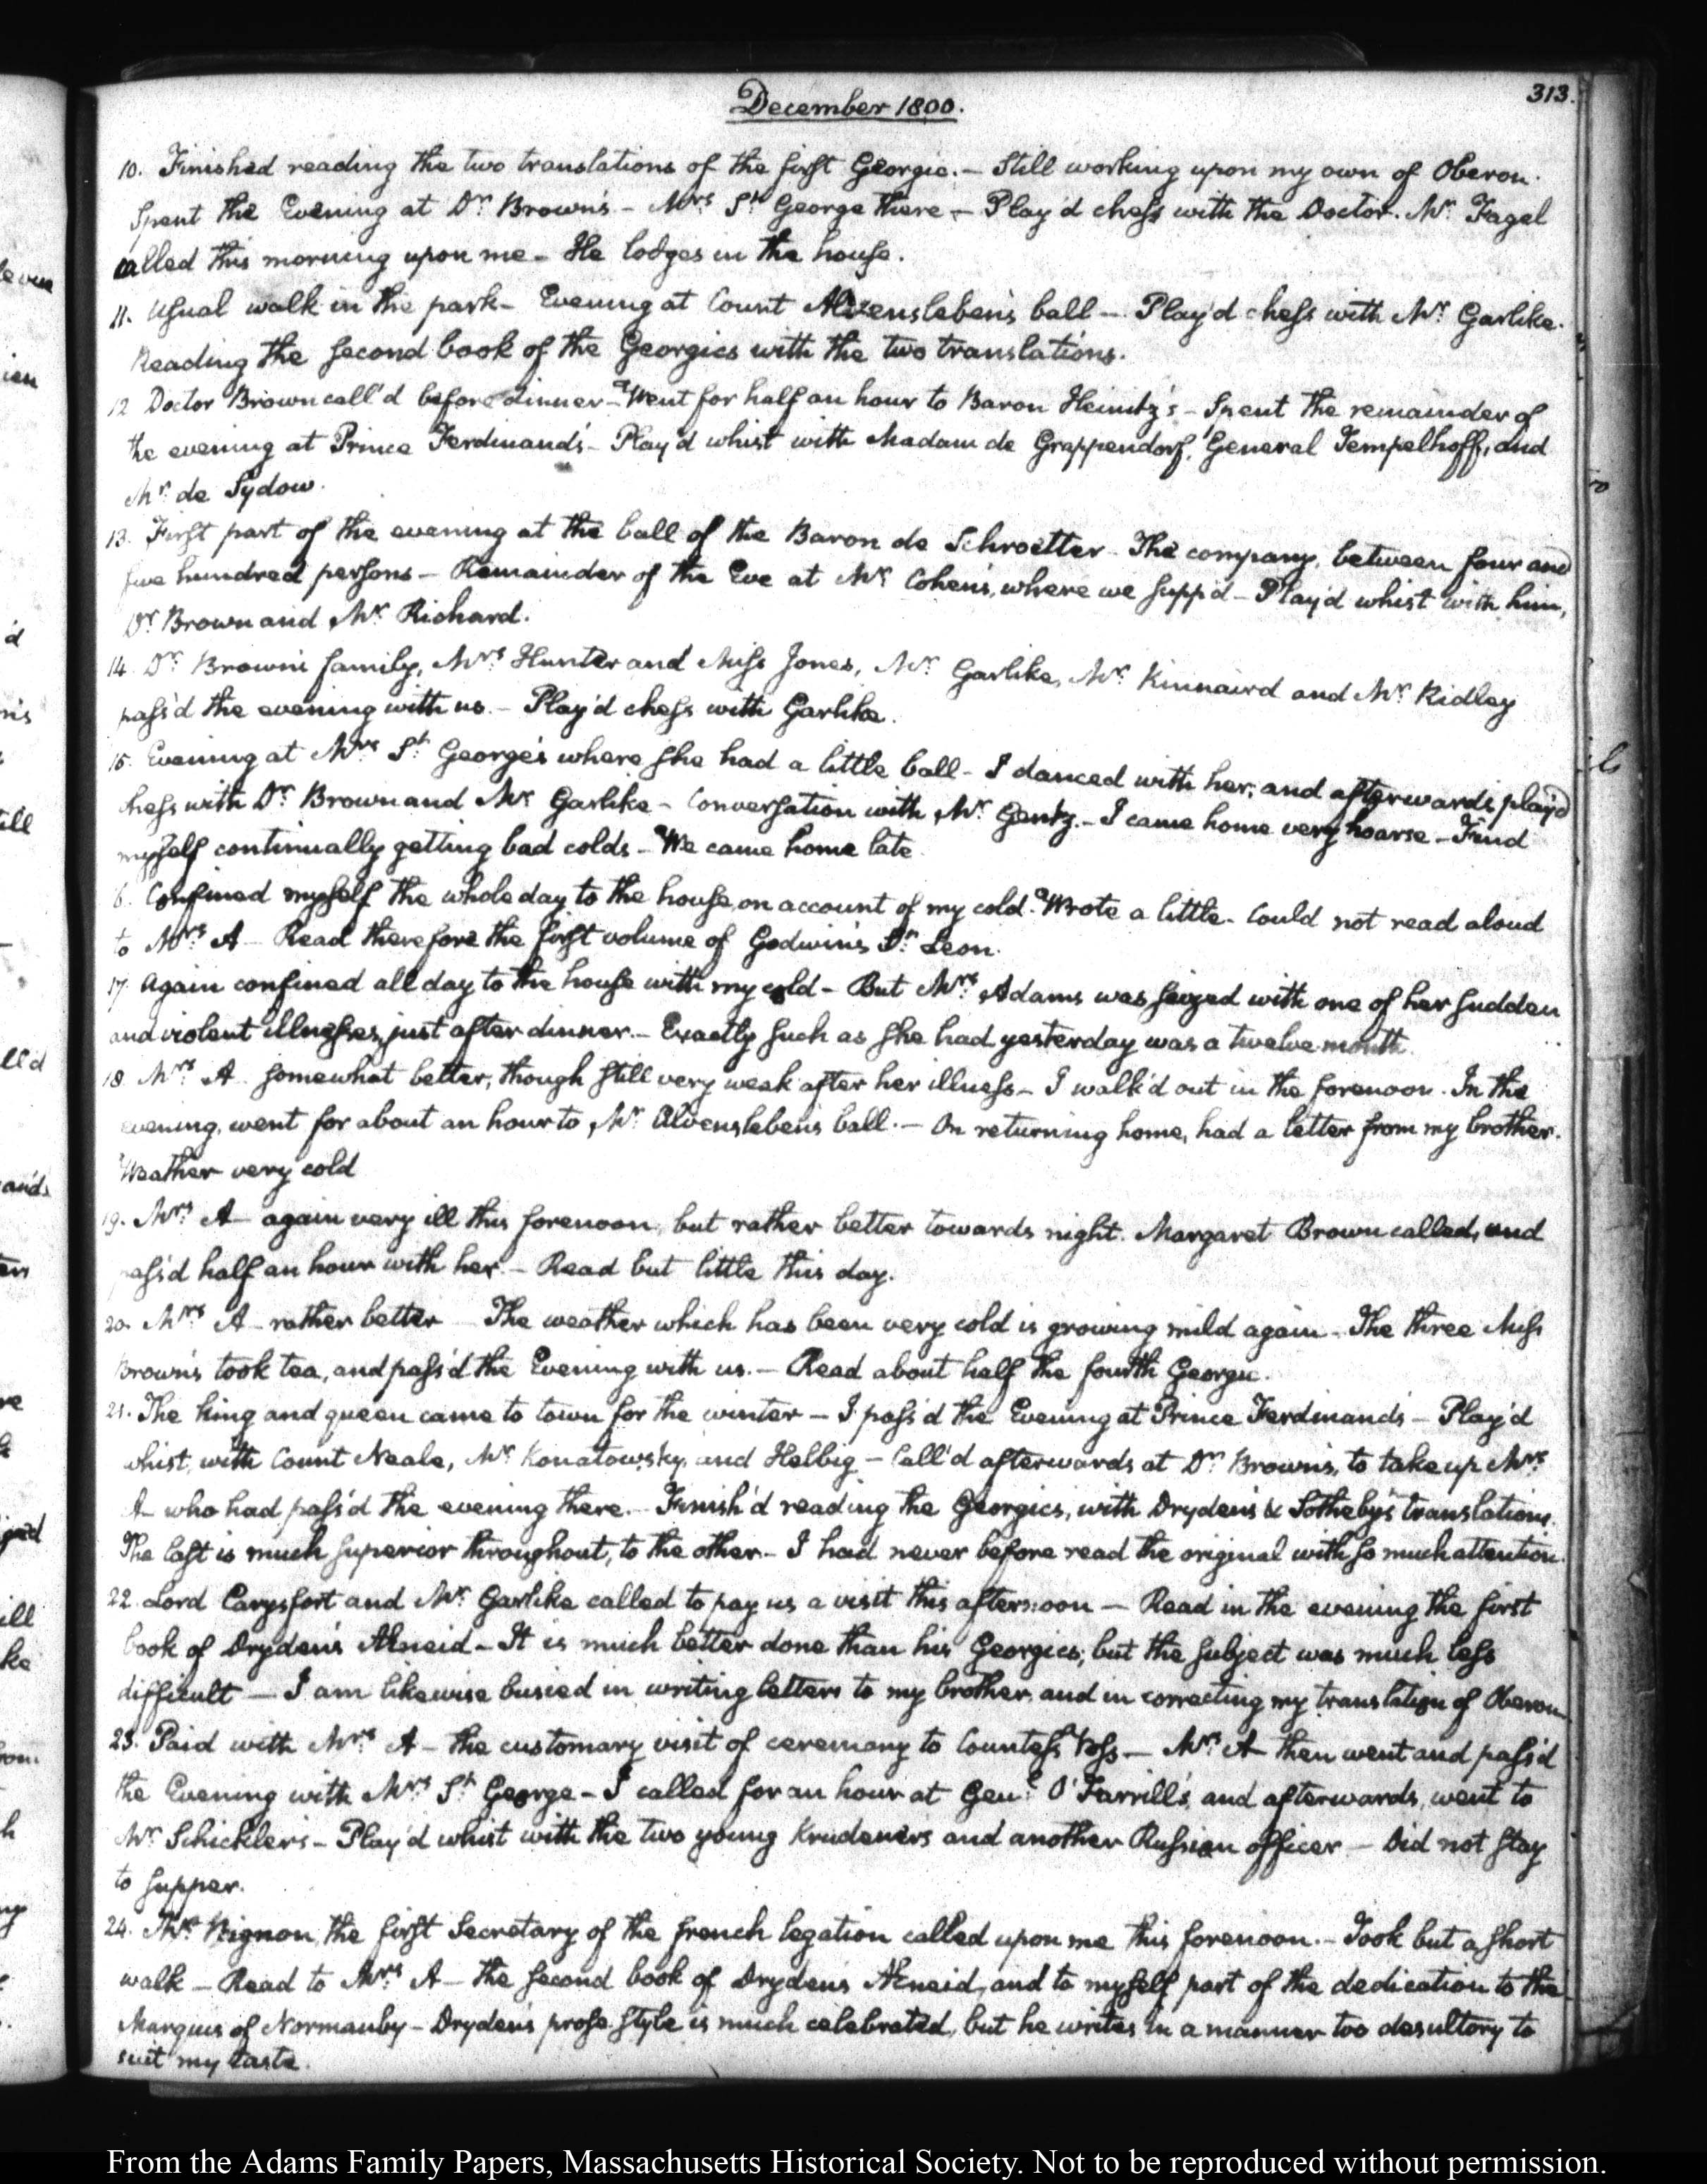 313.
December 1800.
10. Finished reading the two translations of the first Georgic. – Still working upon my own of Oberon.
Spent the Evening at Dr. Brown's – Mrs. St. George there – Play'd chess with the Doctor. Mr. Fagel
called this morning upon me – He lodges in the house.
11. Usual walk in the park – Evening at Count Alvensleben's ball – Play'd chess with Mr. Garlike.
Reading the second book of the Georgics with the two translations.
12 Doctor Brown call'd before dinner – Went for half an hour to Baron Heinitz's – Spent the remainder of
the evening at Prince Ferdinand's – Play'd whist with Madam de Grappendorf, General Tempelhoff, and
Mr. de Sydow.
13. First part of the evening at the ball of the Baron de Schroetter – The company, between four and
five hundred persons – Remainder of the Eve at Mr. Cohen's, where we supp'd – Play'd whist with him,
Dr. Brown and Mr. Richard.
14. Dr. Brown's family, Mrs. Hunter and Miss Jones, Mr. Garlike, Mr. Kinnaird and Mr. Ridley
pass'd the evening with us. – Play'd chess with Garlike.
15. Evening at Mrs. St. George's where she had a little ball – I danced with her, and afterwards play'd
chess with Dr. Brown and Mr. Garlike – Conversation with Mr. Gentz. – I came home very hoarse – Find
myself continually getting bad colds – We came home late.
6. Confined myself the whole day to the house, on account of my cold. Wrote a little – Could not read aloud
to Mrs. A – Read therefore the first volume of Godwin's St. Leon.
17. Again confined all day to the house with my cold – But Mrs. Adams was seized with one of her sudden
and violent illnesses, just after dinner. – Exactly such as she had yesterday was a twelve-month.
18 Mrs. A. somewhat better, though still very weak after her illness – I walk'd out in the forenoon. In the
evening, went for about an hour to Mr. Alvensleben's ball. – On returning home, had a letter from my brother.
Weather very cold
19. Mrs. A – again very ill this forenoon, but rather better towards night. Margaret Brown called, and
pass'd half an hour with her – Read but little this day.
20. Mrs. A – rather better – The weather which has been very cold is growing mild again – The three Miss
Brown's took tea, and pass'd the Evening with us. – Read about half the fourth Georgic.
21. The king and queen came to town for the winter – I pass'd the Evening at Prince Ferdinand's – Play'd
whist, with Count Neale, Mr. Konatowsky, and Helbig – Call'd afterwards at Dr. Brown's, to take up Mrs.
A – who had pass'd the evening there. – Finish'd reading the Georgics, with Dryden's & Sotheby's translations.
The last is much superior throughout, to the other – I had never before read the original with so much attention.
22. Lord Carysfort and Mr. Garlike called to pay us a visit this afternoon – Read in the evening the first
book of Dryden's Aeneid – It is much better done than his Georgics; but the subject was much less
difficult – I am likewise busied in writing letters to my brother, and in correcting my translation of Oberon
23. Paid with Mrs. A – the customary visit of ceremony to Countess Voss – Mrs. A – then went and pass'd
the Evening with Mrs. St. George – I called for an hour at Genl. O'Farrill's, and afterwards, went to
Mr. Schickler's – Play'd whist with the two young Krudeners and another Russian officer – Did not stay
to supper.
24. Mr. Bignon, the first Secretary of the french legation called upon me this forenoon. – Took but a short
walk – Read to Mrs. A – the second book of Dryden's Aeneid, and to myself part of the dedication to the
Marquis of Normanby – Dryden's prose style is much celebrated, but he writes in a manner too desultory to
suit my taste.
From the Adams Family Papers, Massachusetts Historical Society. Not to be reproduced without permission.